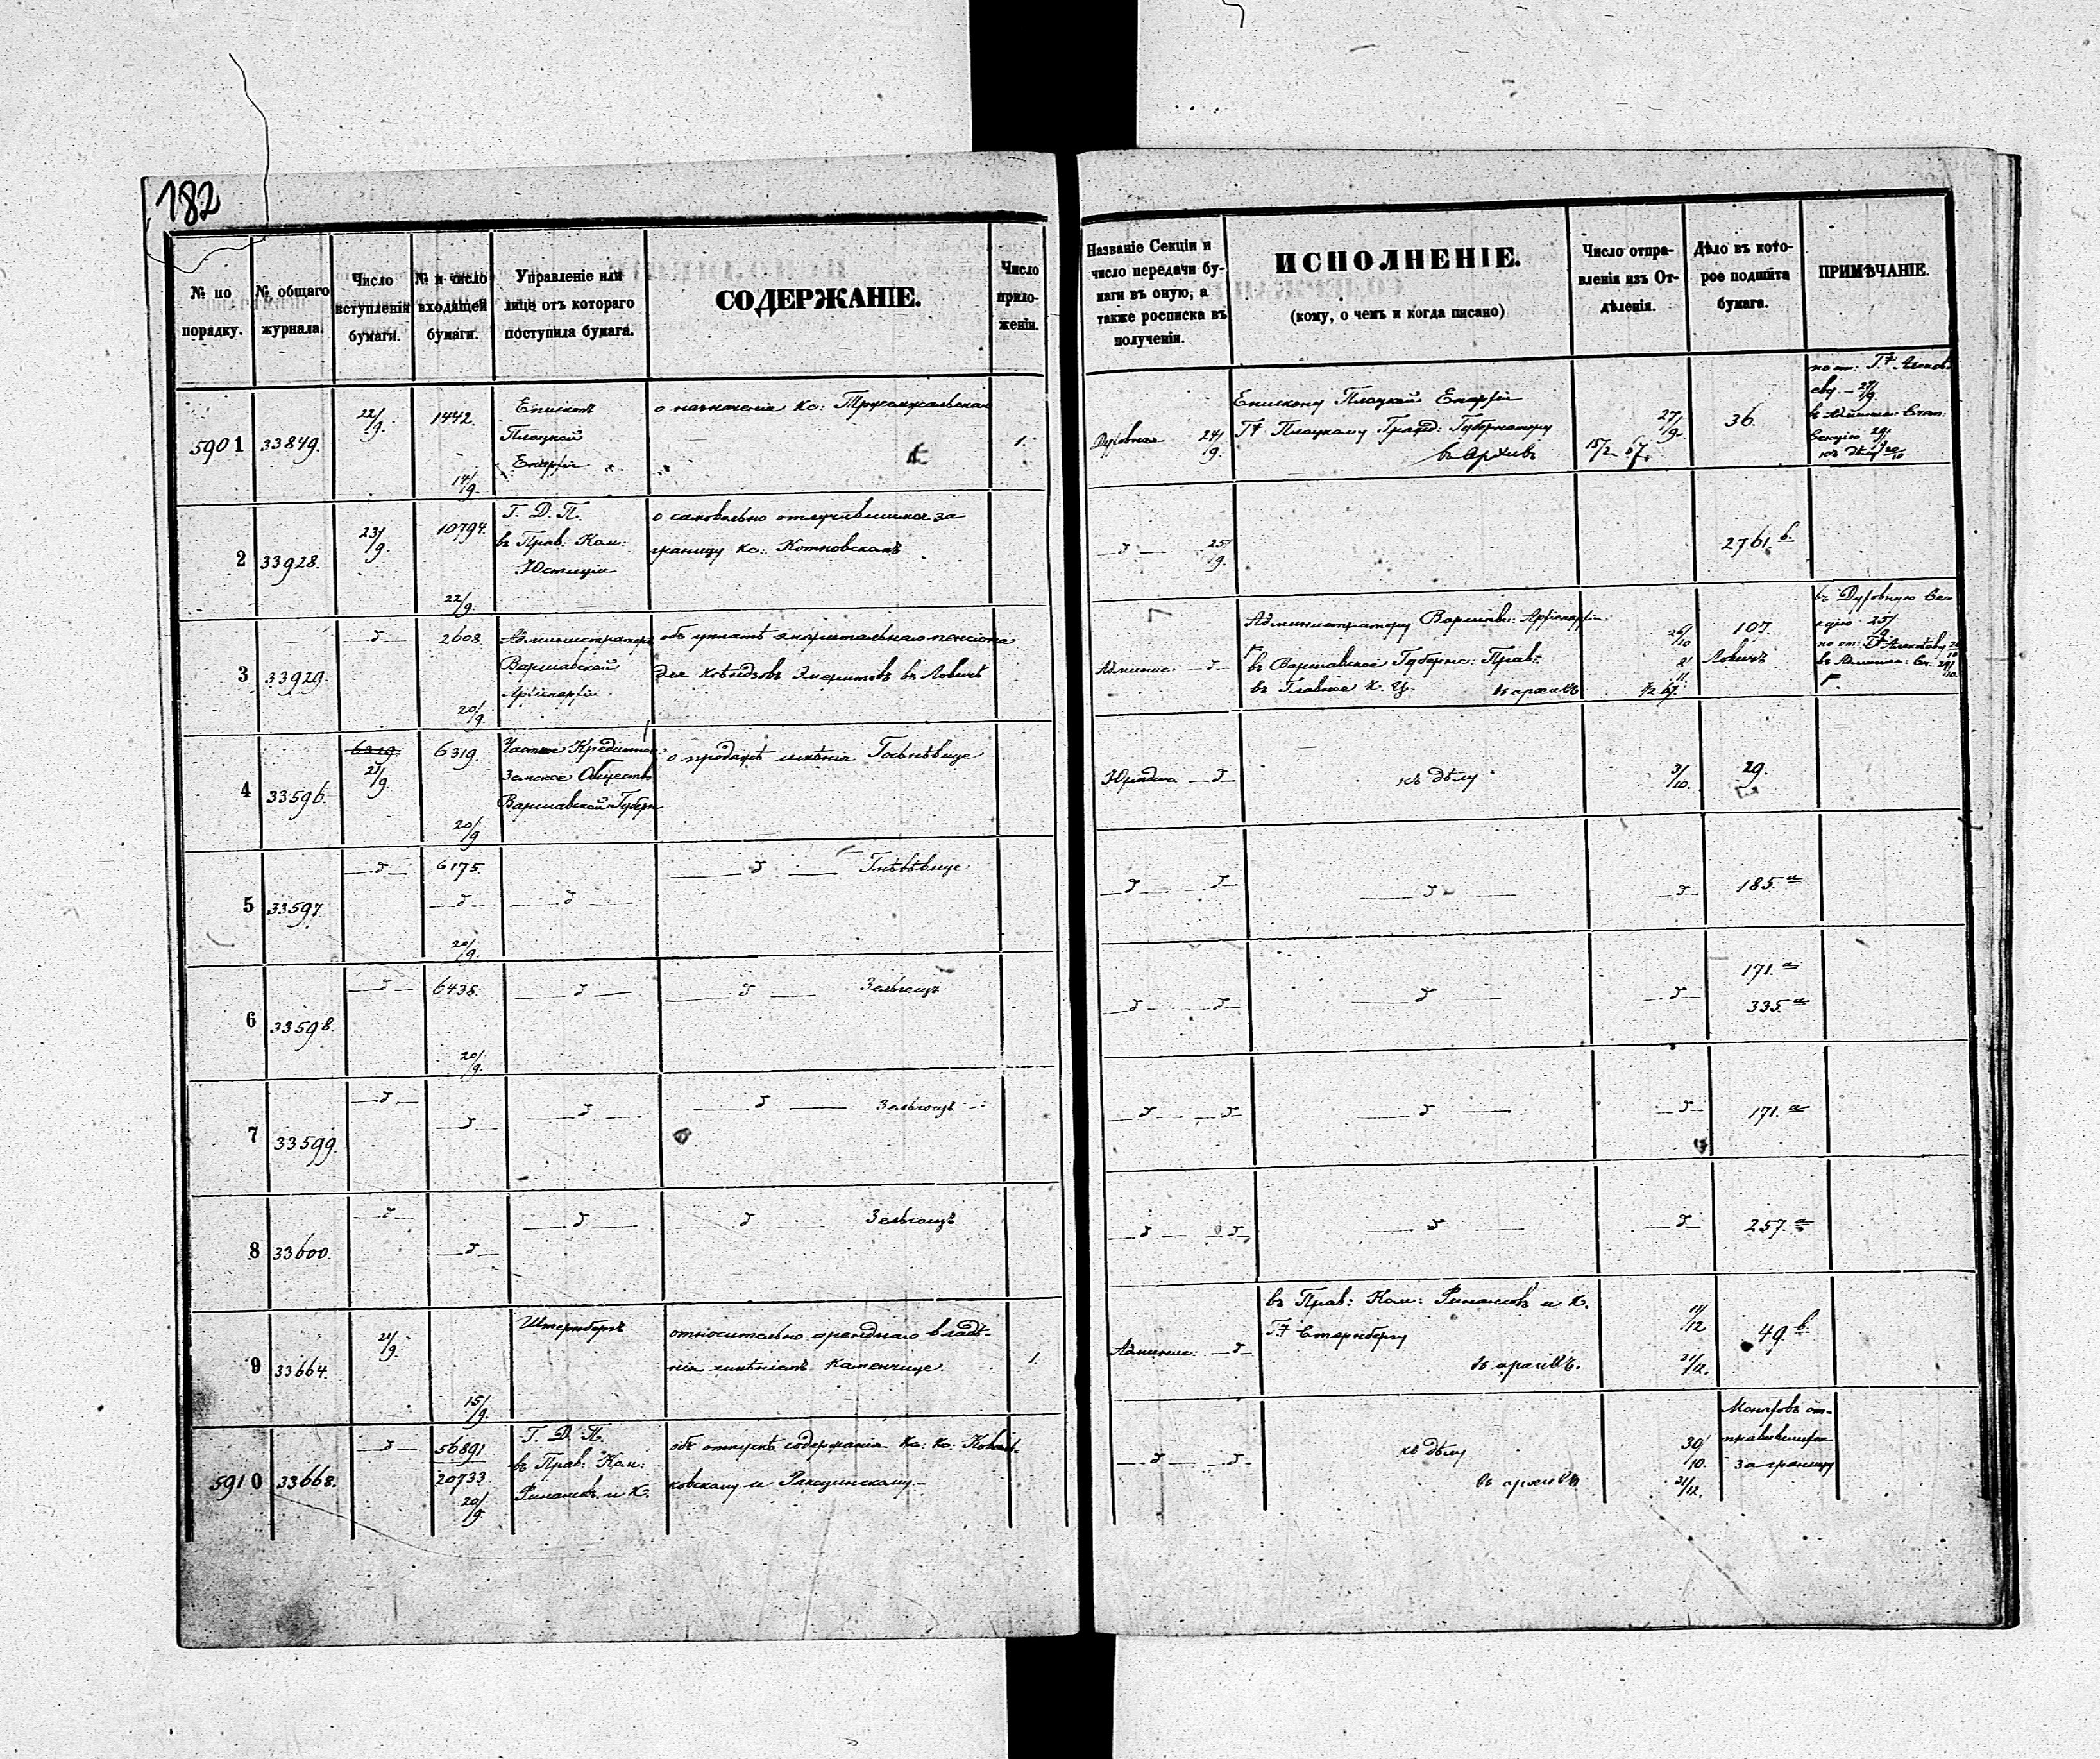 182
№ по порядку.
№ общаго журнала.
Число вступленія бумаги.
№ и число входящей бумаги.
Управленіе или лице отъ котораго поступила бумага.
СОДЕРЖАНІЕ.
Число прило-женій.
Названіе Секціи и число передачи бу-маги въ оную, а также росписка въ полученіи.
ИСПОЛНЕНІЕ.
(кому, о чемъ и когда писано)
Число отпра-вленія изъ От-дѣленія.
Дѣло въ кото-рое подшита бумага.
ПРИМѢЧАНІЕ.
5901 33849. 22/9. 1442. 14/9.
Епископъ
Плоцкой
Епархіи
о назначеніи Кс:
1.
Духовная 24/9.
Епископу Плоцкой Епархіи
Гж Плоцкому Гражд: Губернатору
въ Архивъ
27/9.
15/2 67.
36.
2 33928. 23/9. 10794. 22/9.
Г. Д. П.
въ Прав: Ком:
Юстиціи
о самовольно отлучившимся за
границу Кс: Котковскомъ
25/9.
2761. b.
3 33929. 2608. 20/9.
Администраторъ
Варшавской
Архіепархіи
объ уплатѣ эмеритальнаго пенсіона
для Ксендзовъ Эмеритовъ въ Ловичѣ
Админис.
Администратору Варшав: Архіепархіи
въ Варшавское Губернс: Прав:
въ Главное К. Ц. въ архивъ
26/10
8/11.
9/2 67.
107.
Ловичъ
въ Духовную Се-
кцію 25/9
4 33596. 6319. 21/9. 6319. 20/9
Частное Кредитное
Земское Общество
Варшавской Губерн
о продажѣ имѣнія
Юридич.
къ дѣлу
3/10.
29.
5 33597. 6175. 20/9.
185. a
6 33598. 6438. 20/9.
171. a
335. a
7 33599.
171. a
8 33600.
257. a
9 33664. 21/9. 15/9.
Штернбергъ
относительно аренднаго владѣ-
нія имѣніемъ Каменчице.
1.
Админис:
въ Прав: Ком: Финансовъ и К.
Гж Стернбергу
въ архивъ.
11/12
31/12.
49. b.
5910 33668. 56891 20733 20/9
Г. Д. П.
въ Прав: Ком:
Финансов. и К.
объ отпускѣ содержанія Кс: Кс:
ковскому и
къ дѣлу
въ архивъ
30/10.
31/12.
Монаховъ от-
правившихся
за границу